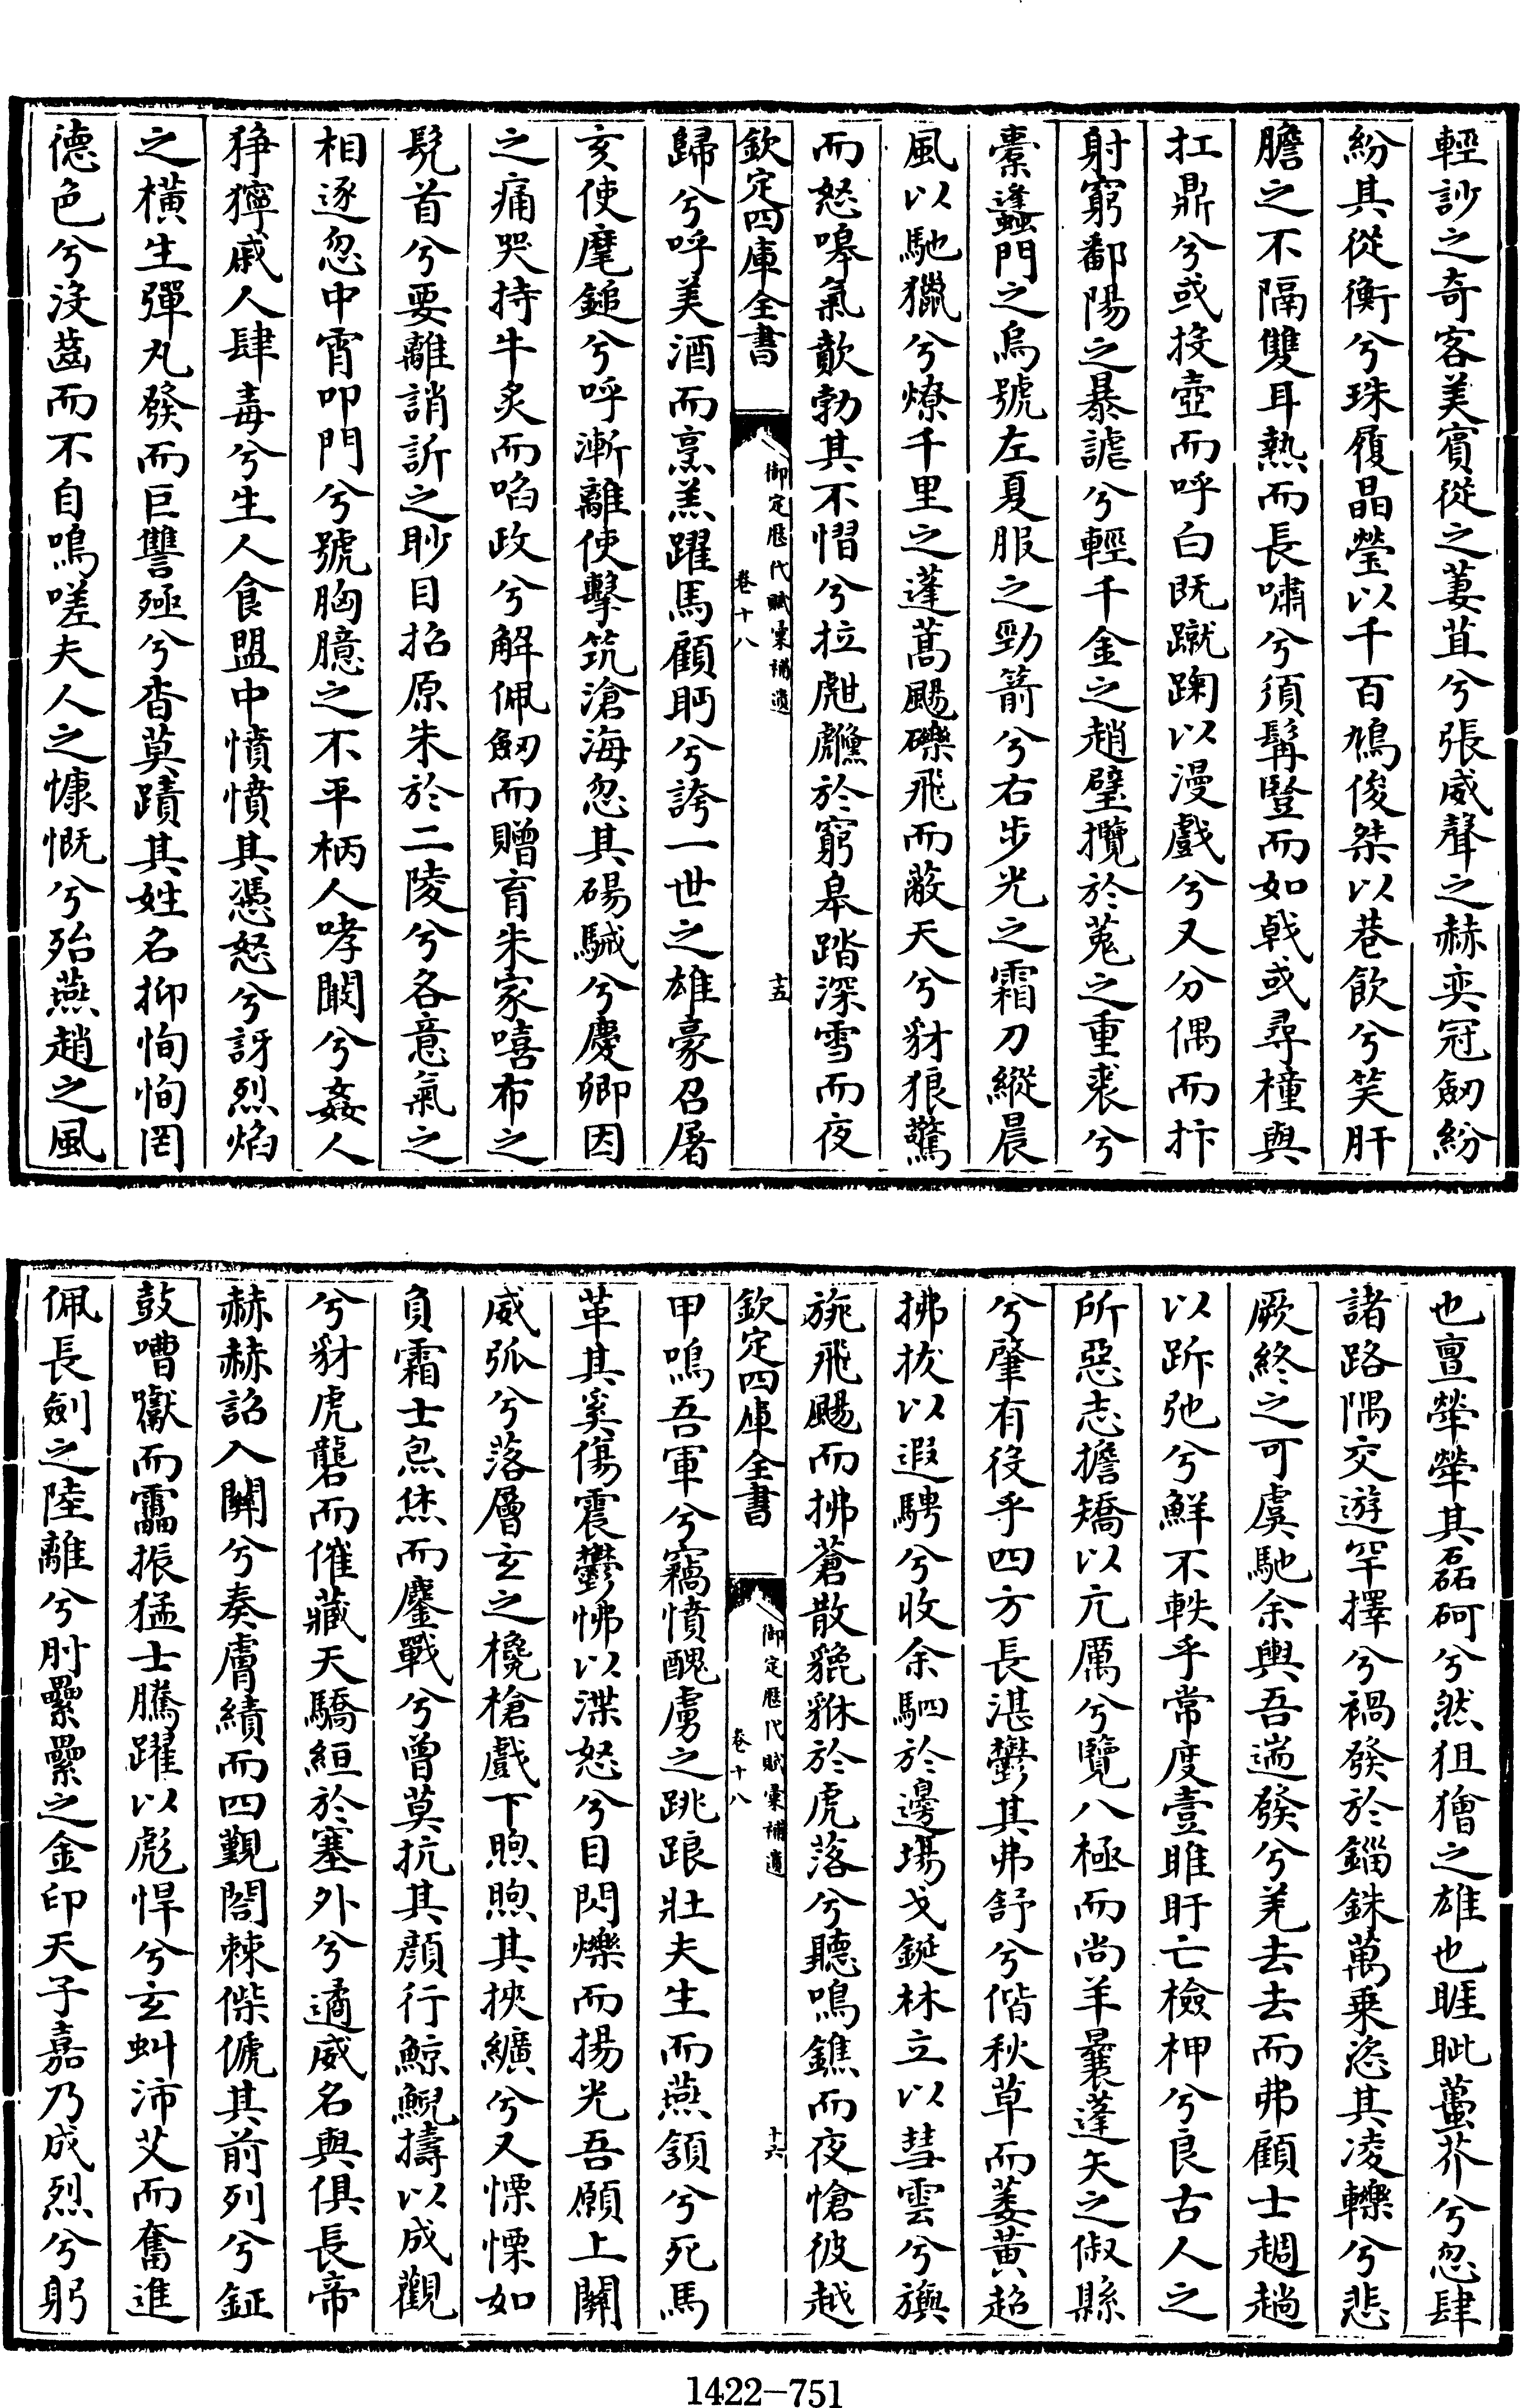 輕訬之奇客美賓從之萋苴兮張威聲之赫奕冠劒紛
紛其從衡兮珠履晶瑩以千百鳩俊桀以巷飲兮笑肝
膽之不隔雙耳熱而長嘯兮須髯豎而如戟或尋橦與
扛鼎兮或投壺而呼白既蹴踘以漫戲兮又分偶而抃
射窮鄱陽之暴謔兮輕千金之趙璧攬於菟之重裘兮
櫜蠭門之烏號左夏服之勁箭兮右步光之霜刀縱晨
風以馳獵兮燎千里之蓬蒿颺礫飛而蔽天兮豺狼驚
而怒嘷氣歕勃其不慴兮拉虣𪋮於窮皋踏深雪而夜
欽定四庫全書
御定歷代賦彙補遺
卷十八
十五
歸兮呼美酒而烹羔躍馬顧眄兮誇一世之雄豪召屠
亥使麾鎚兮呼漸離使擊筑滄海忽其碭駴兮慶卿因
之痛哭持牛炙而啗政兮解佩劒而贈育朱家嘻布之
髡首兮要離誚訢之眇目招原朱於二陵兮各意氣之
相逐忽中宵叩門兮號胸臆之不平柄人哮闞兮姦人
猙獰戚人肆毒兮生人食盟中憤憤其憑怒兮訝烈焰
之橫生彈丸發而巨讐殛兮杳莫蹟其姓名抑恂恂罔
德色兮沒齒而不自鳴嗟夫人之慷慨兮殆燕趙之風
也亶犖犖其磊砢兮然狙獪之雄也睚眦蠆芥兮忽肆
諸路隅交遊罕擇兮禍發於錙銖萬乘恣其凌轢兮悲
厥終之可虞馳余輿吾遄發兮羌去去而弗顧士趯趫
以跅弛兮鮮不軼乎常度壹睢盱亡檢柙兮良古人之
所惡志擔矯以亢厲兮覽八極而尚羊曩蓬矢之俶縣
兮肇有役乎四方長湛鬱其弗舒兮偕秋草而萎黃超
拂拔以遐騁兮收余駟於邊場戈鋋林立以彗雲兮旟
旐飛颺而拂蒼散貔貅於虎落兮聽鳴鐎而夜愴彼越
欽定四庫全書
御定歷代賦彙補遺
卷十八
十六
甲鳴吾軍兮竊憤醜虜之跳踉壯夫生而燕頷兮死馬
革其奚傷震鬱怫以渫怒兮目閃爍而揚光吾願上關
威弧兮落層玄之欃槍戲下煦煦其挾纊兮又慄慄如
負霜士炰烋而鏖戰兮曾莫抗其顏行鯨鯢擣以成觀
兮豺虎礱而催藏天驕絙於塞外兮遹威名與俱長帝
赫赫詔入關兮奏膚績而四覲闔棘偨傂其前列兮鉦
鼓嘈囐而靁振猛士騰躍以彪悍兮玄虯沛艾而奮進
佩長劍之陸離兮肘纍纍之金印天子嘉乃成烈兮躬
1422-751